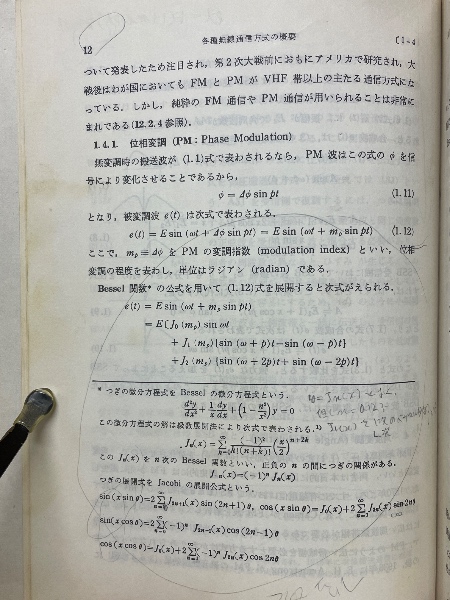 12
各種無線通信方式の概要
(1-4
ついて発表したため注目され，第2次大戦前におもにアメリカで研究され，大
戦後はわが国においても FM と PM が VHF 帯以上の主たる通信方式にな
っている．しかし，純粋の FM 通信や PM 通信が用いられることは非常に
まれである(12.2.4参照)．
1.4.1. 位相変調 (PM : Phase Modulation)
無変調時の搬送波が (1.1)式で表わされるなら，PM 波はこの式の φ を信
号により変化させることであるから，
φ = Δφ sin pt (1.11)
となり，被変調波 e(t) は次式で表わされる．
e(t) = E sin (ωt + Δφ sin pt) = E sin (ωt + m_p sin pt) (1.12)
ここで，m_p ≡ Δφ を PM の変調指数 (modulation index) といい，位相
変調の程度を表わし，単位はラジアン (radian) である．
Bessel 関数* の公式を用いて (1.12)式を展開すると次式がえられる．
e(t) = E sin (ωt + m_p sin pt)
= E[J₀(m_p) sin ωt
+ J₁(m_p){sin (ω + p)t − sin (ω − p)t}
+ J₂(m_p){sin (ω + 2p)t + sin (ω − 2p)t}
* つぎの微分方程式を Bessel の微分方程式という．
d²y/dx² + 1/x dy/dx + (1 − n²/x²)y = 0
この微分方程式の解は級数展開法により次式で表わされる．
Jₙ(x) = Σ_{k=0}^{∞} (−1)ᵏ/(k!(n+k)!) (x/2)^{n+2k}
この Jₙ(x) を n次の Bessel 関数といい，正負の n の間につぎの関係がある．
J₋ₙ(x) = (−1)ⁿ Jₙ(x)
つぎの展開式を Jacobi の展開公式という．
sin (x sin θ) = 2 Σ_{n=0}^{∞} J₂ₙ₊₁(x) sin (2n+1) θ, cos (x sin θ) = J₀(x) + 2 Σ_{n=1}^{∞} J₂ₙ(x) cos 2nθ
cos (x cos θ) = J₀(x) + 2 Σ(−1)ⁿ J₂ₙ(x) cos 2nθ